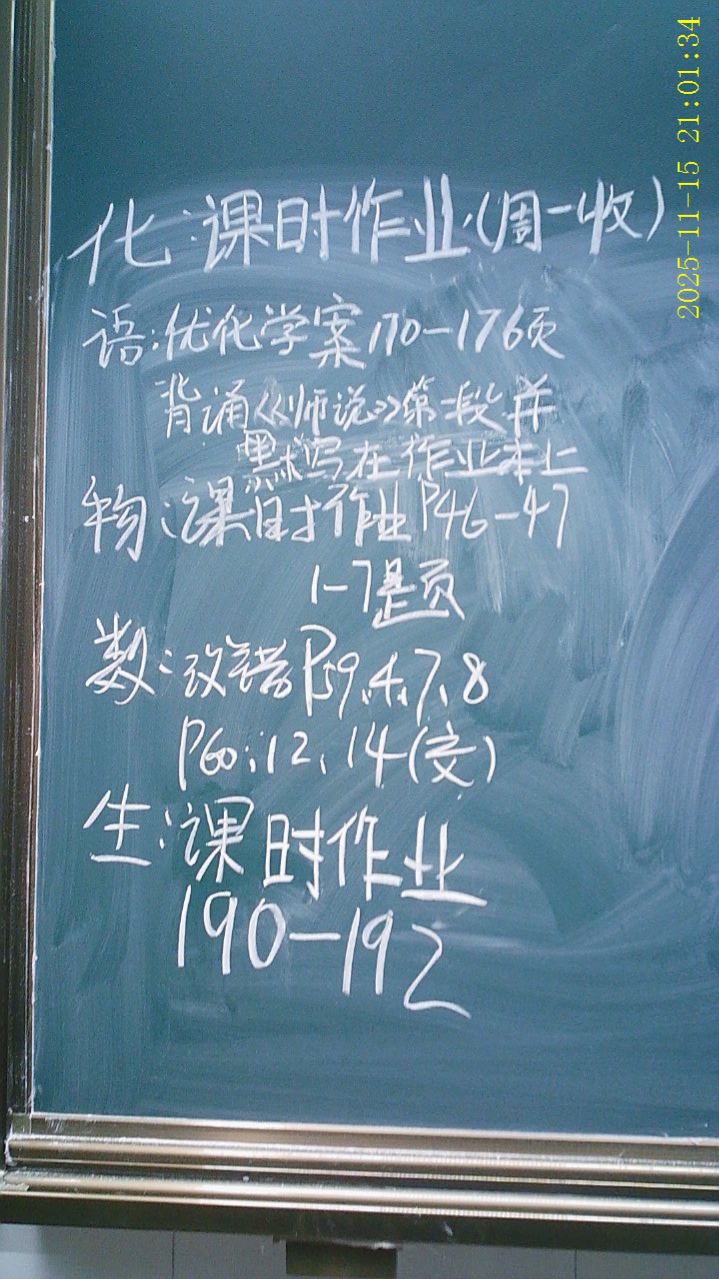 化:课时作业(周一收)
语:优化学案170-176页
背诵《师说》第一段并
默写在作业本上
物:课时作业P46-47
1-7题
数:改错P59.4.7.8
P60:12、14(交)
生:课时作业
190-192
2025-11-15 21:01:34